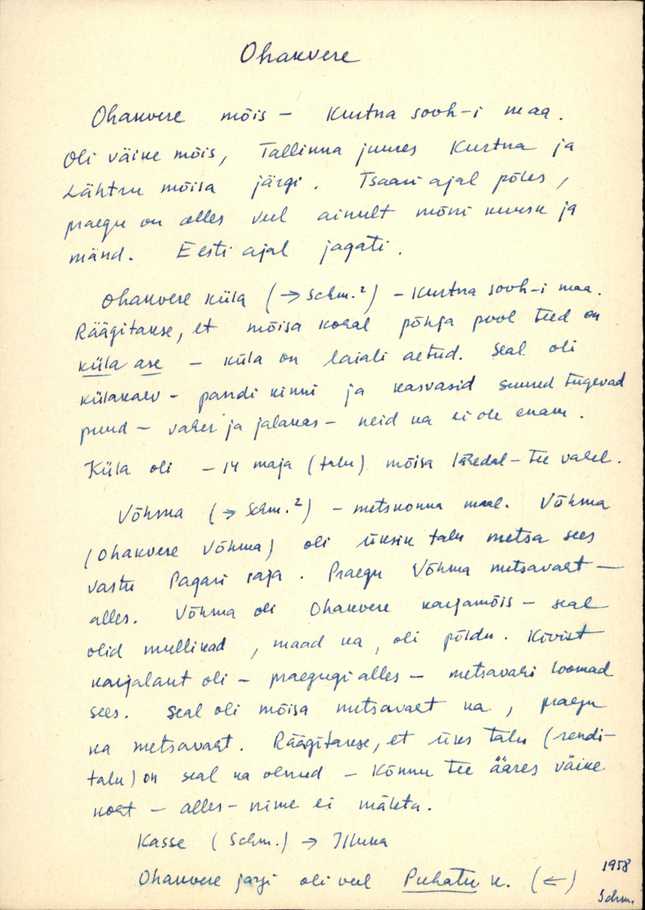 Ohakvere
Ohakvere mõis – Kurtna sovh-i maa.
Oli väike mõis, Tallinna juures Kurtna ja
Lähtru mõisa järgi. Tsaari ajal põles,
praegu on alles veel ainult mõni kuusk ja
mänd. Eesti ajal jagati.
Ohakvere küla (→ Schm.²) – Kurtna sovh-i maa.
Räägitakse, et mõisa kohal põhja pool teed on
küla ase – küla on laiali aetud. Seal oli
külakaev – pandi kinni ja kasvasid suured tugevad
puud – vaher ja jalakas – neid ka ei ole enam.
Küla oli – 14 maja (talu) mõisa lähedal – tee vahel.
Võhma (→ Schm.²) – metskonna maal. Võhma
(Ohakvere Võhma) oli üksik talu metsa sees
vastu Pagari raja. Praegu Võhma metsavaht –
alles. Võhma oli Ohakvere karjamõis – seal
olid mullikad, maad ka, oli põldu. Kivist
karjalaut oli – praegugi alles – metsavahi loomad
sees. Seal oli mõisa metsavaht ka, praegu
ka metsavaht. Räägitakse, et üks talu (rendi-
talu) on seal ka olnud – Kõnnu tee ääres väike
koht – alles – nime ei mäleta.
Kasse (Schm.) → Illuka
Ohakvere järgi oli veel Puhatu k. (←)
1958
Schm.